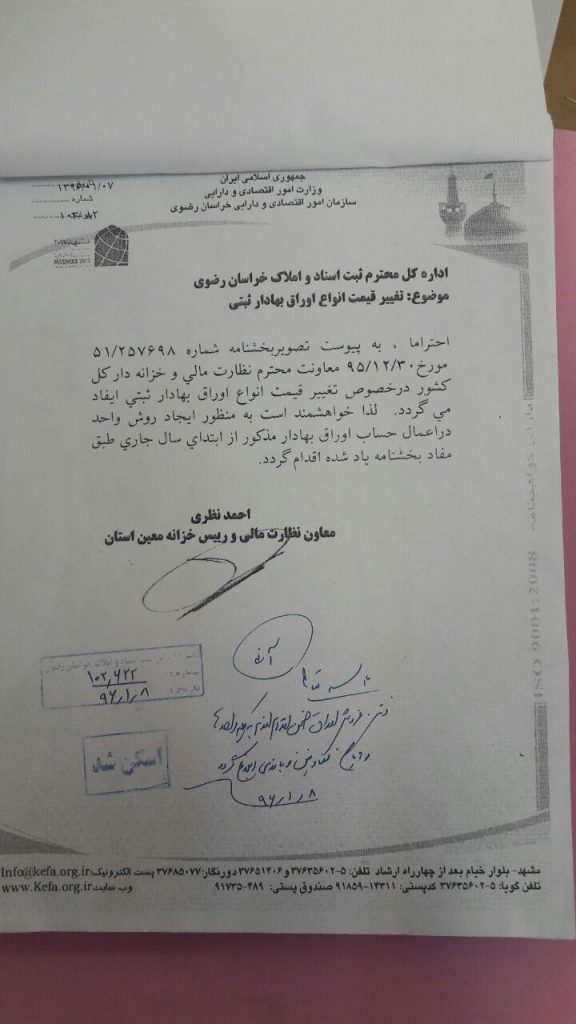 جمهوری اسلامی ایران
وزارت امور اقتصادی و دارایی
سازمان امور اقتصادی و دارایی خراسان رضوی
شماره
MASHHAD 2017
اداره کل محترم ثبت اسناد و املاک خراسان رضوی
موضوع: تغییر قیمت انواع اوراق بهادار ثبتی
احتراما ، به پیوست تصویربخشنامه شماره ۵۱/۲۵۷۶۹۸
مورخ۹۵/۱۲/۳۰ معاونت محترم نظارت مالي و خزانه دار كل
كشور درخصوص تغییر قیمت انواع اوراق بهادار ثبتي ایفاد
مي گردد. لذا خواهشمند است به منظور ایجاد روش واحد
دراعمال حساب اوراق بهادار مذکور از ابتداي سال جاري طبق
مفاد بخشنامه یاد شده اقدام گردد.
احمد نظری
معاون نظارت مالی و رییس خزانه معین استان
ISO 9001:2008
۱۰۲,۶۲۲
۹۶,۱,۸
اسکن شد
۹۶,۱,۸
مشهد- بلوار خیام بعد از چهارراه ارشاد تلفن: ۵-۳۷۶۳۵۶۰۲ و ۳۷۶۵۱۴۰۶ دورنگار: ۳۷۶۸۵۰۷۷ پست الکترونیک: Info@kefa.org.ir
تلفن گویا: ۵-۳۷۶۳۵۶۰۲ کدپستی: ۱۴۳۱۱-۹۱۸۵۹ صندوق پستی: ۴۸۹-۹۱۷۳۵ وب سایت www.Kefa.org.ir